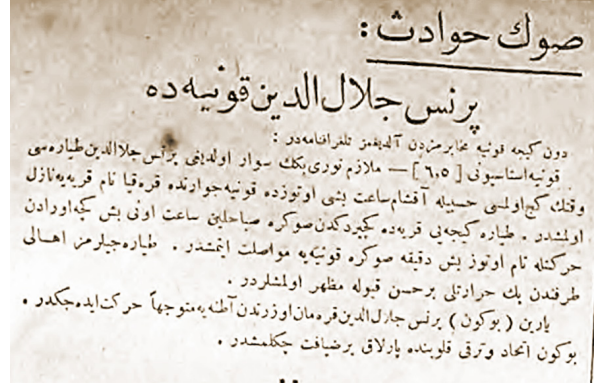 صوك حوادث :
پرنس جلال الدين قونيه ده
دون كيجه قونيه مخابرمزدن آلديغمز تلغرافنامه در :
قونيه استاسيونى [ ٦،٥ ] — ملازم نورى بكك سوار اولديغى پرنس جلال الدين طياره سى
وقتك كچ اولمسى حسبيله آقشام ساعت بشى اوتوزده قونيه جوارنده قره قيا نام قريه يه نازل
اولمشدر . طياره كيجه يى قريه ده كچيردكدن صوكره صباحلين ساعت اونى بش كچه اورادن
حركتله تام اوتوز بش دقيقه صوكره قونيه يه مواصلت ايتمشدر . طياره جيلرمز اهالى
طرفندن پك حرارتلى برحسن قبوله مظهر اولمشلردر .
يارين ( بوكون ) پرنس جلال الدين قره مان اوزرندن آطنه يه متوجهاً حركت ايده جكدر .
بوكون اتحاد وترقى قلوبنده پارلاق برضيافت چكلمشدر .